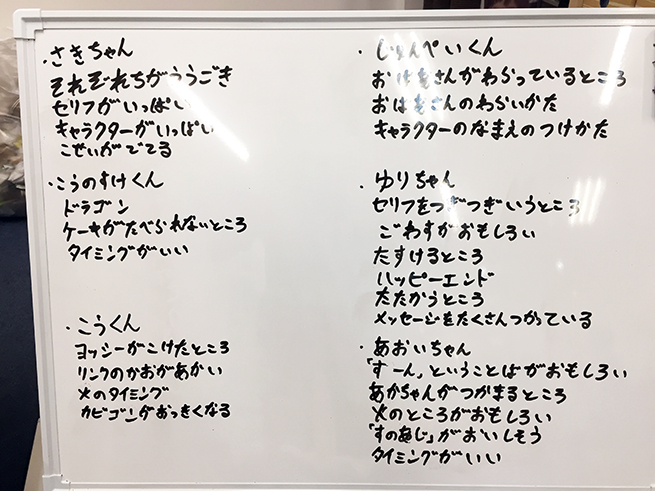 ・さきちゃん
それぞれちがううごき
セリフがいっぱい
キャラクターがいっぱい
こせいがでてる
・こうのすけくん
ドラゴン
ケーキがたべられないところ
タイミングがいい
・こうくん
ヨッシーがこけたところ
リンクのかおがあかい
火のタイミング
カビゴンがおっきくなる
・じゅんぺいくん
おばあさんがわらっているところ
おばあさんのわらいかた
キャラクターのなまえのつけかた
・ゆりちゃん
セリフをつぎつぎいうところ
ごわすがおもしろい
たすけるところ
ハッピーエンド
たたかうところ
メッセージをたくさんつかっている
・あおいちゃん
「すーん」ということばがおもしろい
あかちゃんがつかまるところ
火のところがおもしろい
「すのあじ」がおいしそう
タイミングがいい